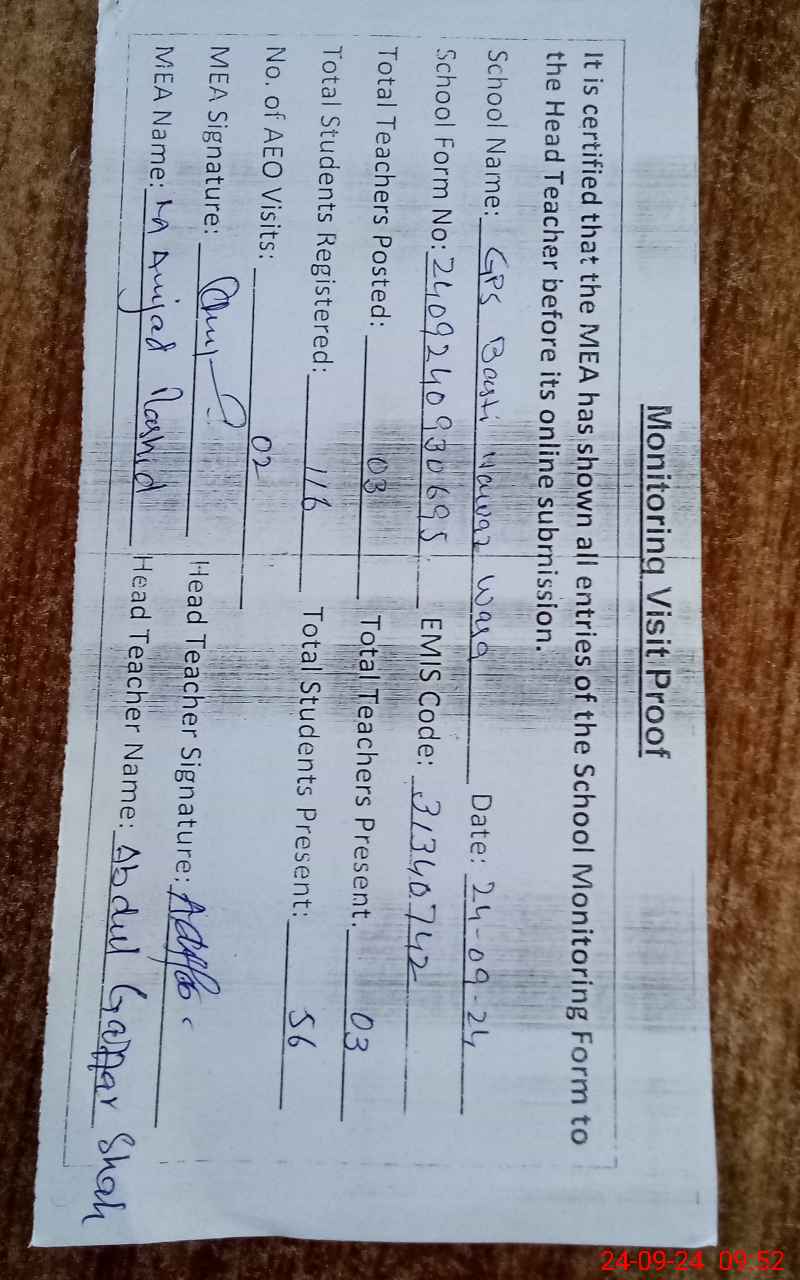 Monitoring Visit Proof
It is certified that the MEA has shown all entries of the School Monitoring Form to
the Head Teacher before its online submission.
School Name: GPS Basti Nawaz Wara Date: 24-09-24
School Form No: 2409240930695 EMIS Code: 31340742
Total Teachers Posted: 03 Total Teachers Present. 03
Total Students Registered: 116 Total Students Present: 56
No. of AEO Visits: 02
MEA Signature: Head Teacher Signature:
MEA Name: M Amjad Rashid Head Teacher Name: Abdul Gaffar Shah
24-09-24 09:52